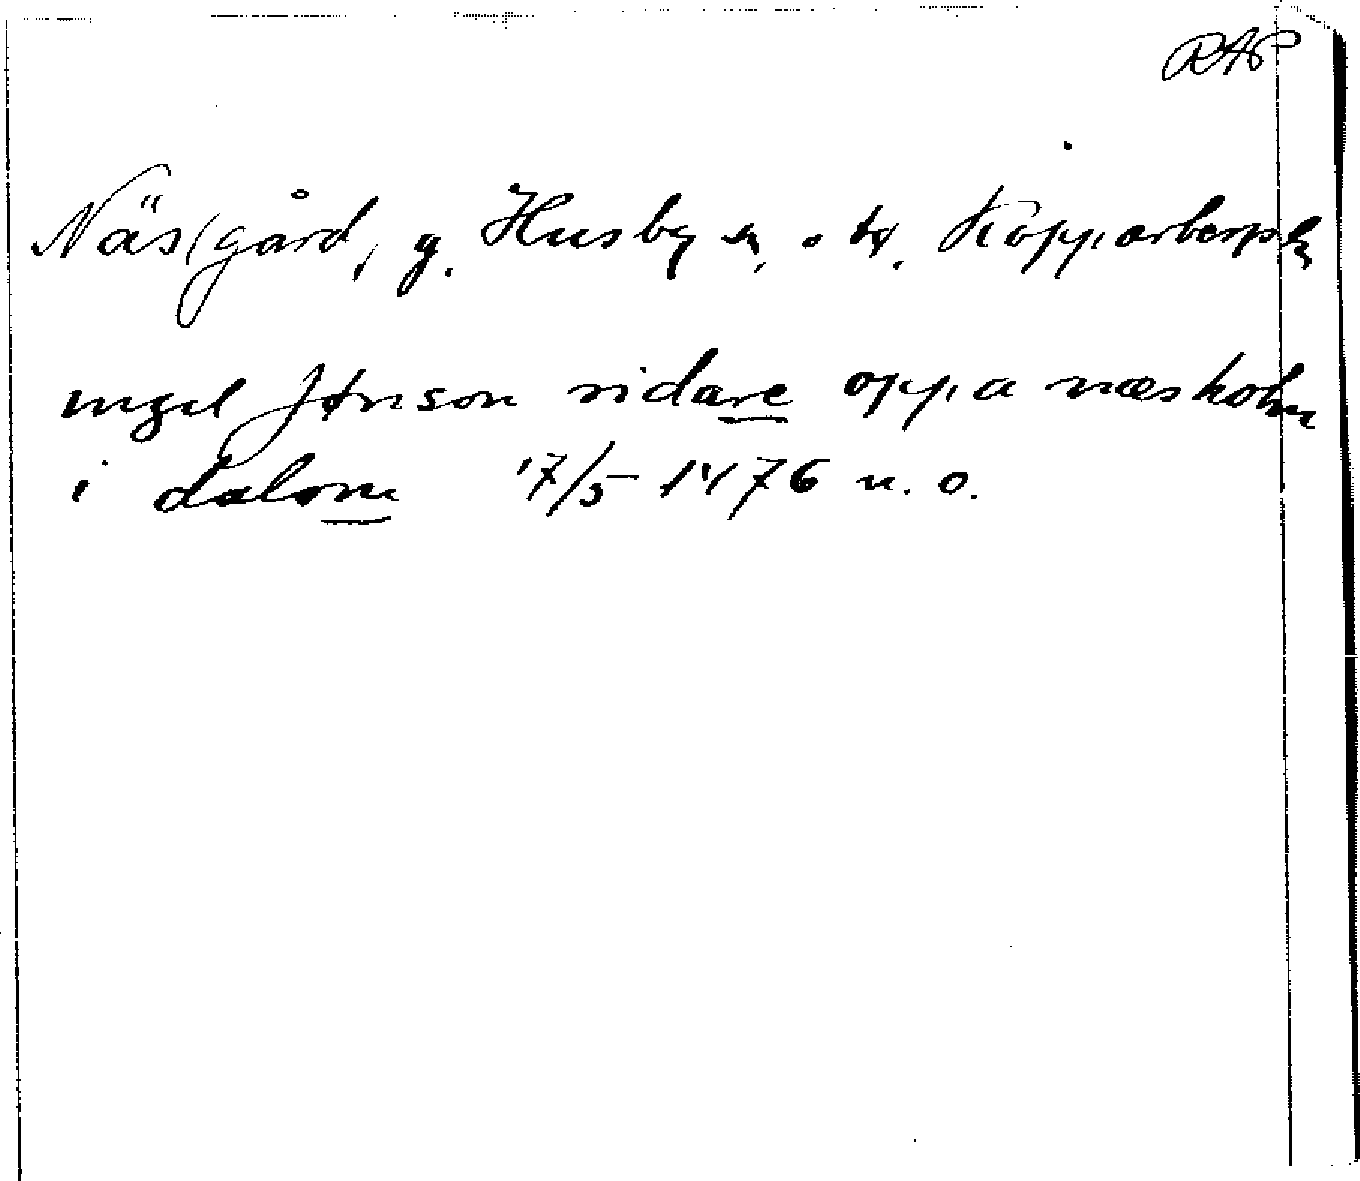 RAP
Näs(gård, g. Husby sn. o hd. Kopparbergs l.
ingel Jønson ridare oppa næsholm
i dalom 17/5 1476 u. o.